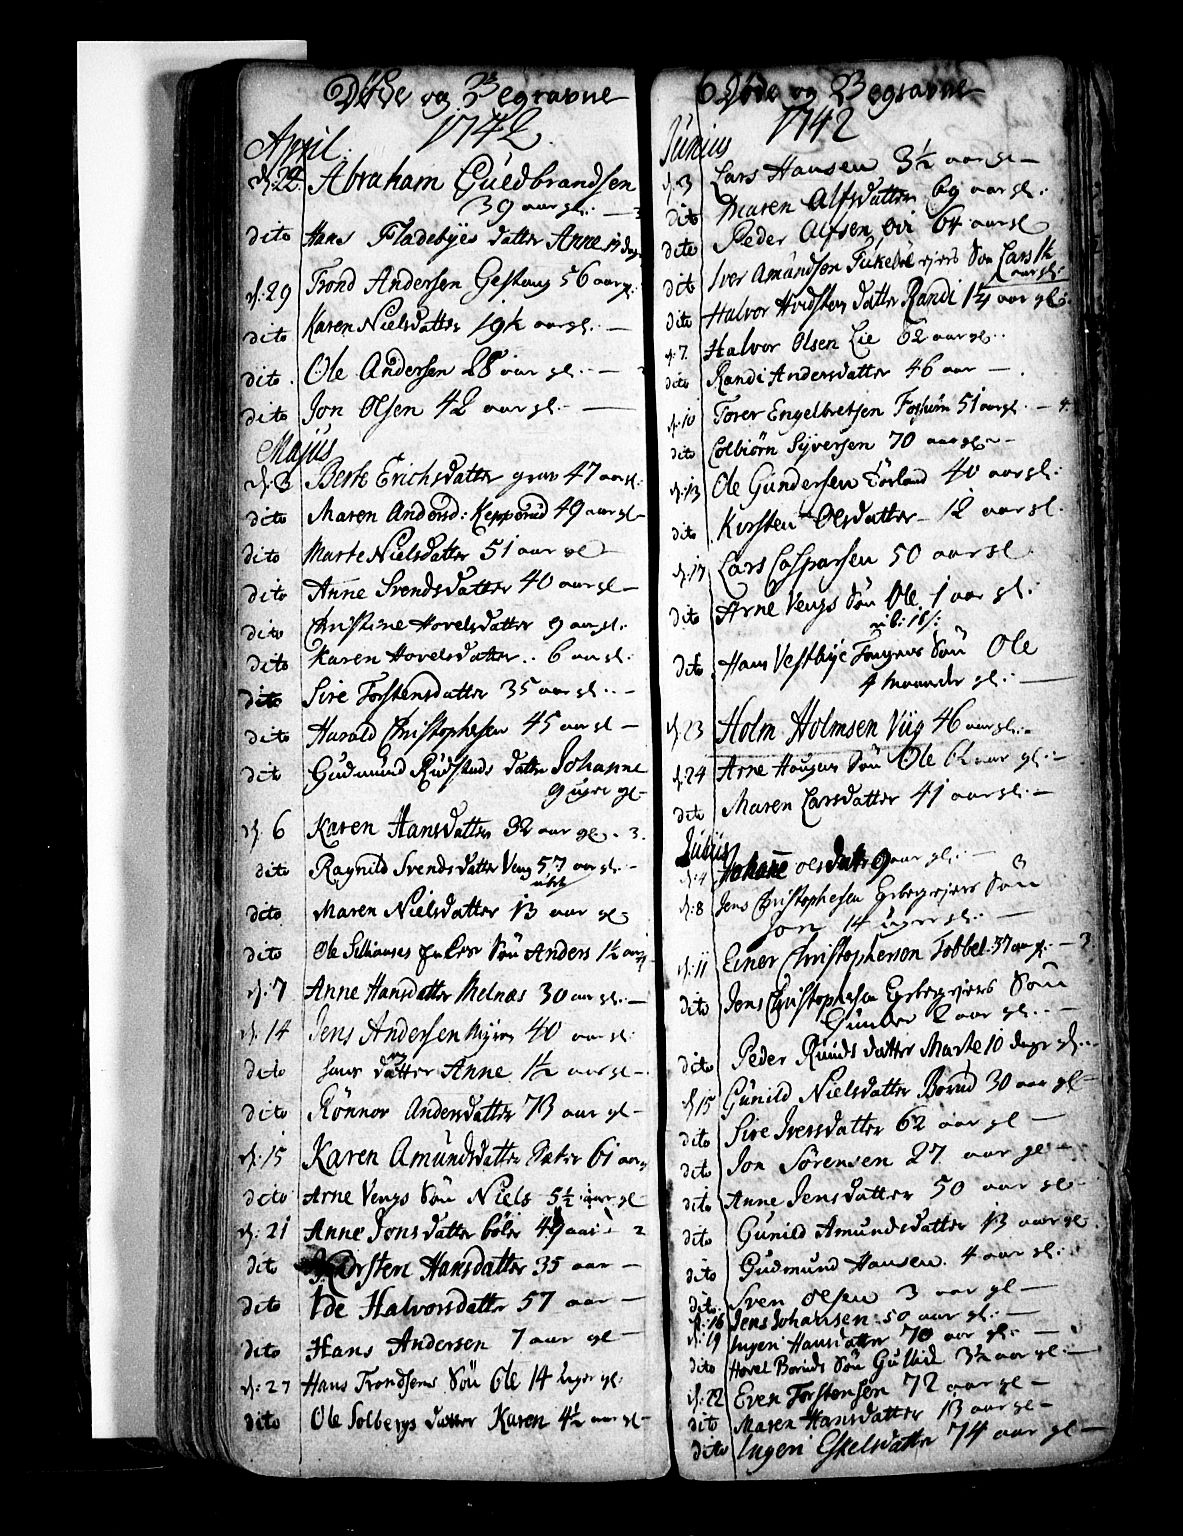 Døde og Begravne
1742
April
d. 22. Abraham Guldbrandsen
39 aar gl. — 3
dito Hans Fladebyes datter Anne 11 dage
d. 29 Trond Andersen Gestang 56 aar gl.
dito Karen Nielsdatter 19½ aar gl. —
dito Ole Andersen 28 aar gl. —
dito Jon Olsen 42 aar gl. —
Majus
d. 3 Berte Erichsdatter 47 aar gl.
dito Maren Andersd: Kepperud 49 aar gl —
dito Marte Nielsdatter 51 aar gl —
dito Anne Svendsdatter 40 aar gl —
dito Christine Hovelsdatter 9 aar gl.
dito Karen Hovelsdatter .. 6 aar gl.
dito Sire Torstensdatter 35 aar gl. —
dito Harald Christophersen 45 aar gl —
dito Gudmund Rudstads datter Johanne
9 uger gl —
d. 6 Karen Hansdatter 32 aar gl. 3.
dito Ragnild Svendsdatter Veng 57 aar gl. —
dito Maren Nielsdatter 13 aar gl
dito Ole Søn Anders 1½ aar gl
d. 7 Anne Hansdatter Melnæs 30 aar gl. —
d. 14 Jens Andersen 40 aar gl.
dito hans datter Anne 1½ aar gl —
dito Rønnor Andersdatter 73 aar gl —
d. 15 Karen Amundsdatter Sæter 61 aar
dito Arne Vengs Søn Niels 5½ aar gl —
d. 21 Anne Jonsdatter Bøler 49 aar — 2
dito Kirsten Hansdatter 35 aar —
dito Ide Halvorsdatter 57 aar —
dito Hans Andersen 7 aar gl —
d. 27 Hans Trondsens Søn Ole 14 Uger gl.
dito Ole Solbergs datter Karen 4½ aar gl —
Døde og Begravne
1742
Junius
d. 3 Lars Hansen 3½ aar gl —
dito Maren Alfsdatter 69 aar gl.
dito Peder Alfsen 64 aar gl
dito Iver Amundsen Søn Lars 1½
aar gl.
dito Halvor Hvidstens datter Randi 1¼ aar gl.
d. 7. Halvor Olsen Lie 62 aar gl.
dito Randi Andersdatter 46 aar —
d. 10 Torer Engelbretsen Fosum 51 aar gl. — 4.
dito Colbiørn Syversen 70 aar gl —
d. 13 Ole Gundersen Tørland 40 aar gl.
dito Kirsten Olsdatter 12 aar gl.
d. 17 Lars Casparsen 50 aar gl
dito Arne Vengs Søn Ole 1 aar gl.
dito Hans Vestbye Søn Ole
4 Maaneder gl. —
d. 23 Holm Holmsen Viig 46 aar gl.
d. 24 Arne Haugens Søn Ole 62 aar gl. —
dito Maren Larsdatter 41 aar gl. —
Julius
d. 4 Johane olsdatr 9 aar gl. —
d. 8 Jens Christophersen Søn
Jon 14 uger gl. —
d. 11 Einer Christophersen Tobbel 37 aar gl. — 3.
dito Jens Christophersen Søn
Gunder 2 aar gl. —
dito Peder Ruuds datter Marte 10 dage gl.
d. 15 Gunild Nielsdatter Borud 30 aar gl —
dito Sire Iversdatter 62 aar gl —
dito Jon Sørensen 27 aar gl —
dito Anne Jensdatter 50 aar gl
dito Gunild Amundsdatter 13 aar gl.
dito Gudmund Hansen 4 aar gl.
dito Sven Olsen 3 aar gl —
d. 16 Jens Johansen 50 aar gl. —
d. 19 Ingen Hansdatter 70 aar gl. —
dito Hovel Boruds Søn Gulbrd 3½ aar gl. —
d. 22 Even Torstensen 72 aar gl —
dito Maren Hansdatter 13 aar gl —
dito Ingen Eskelsdatter 74 aar gl —